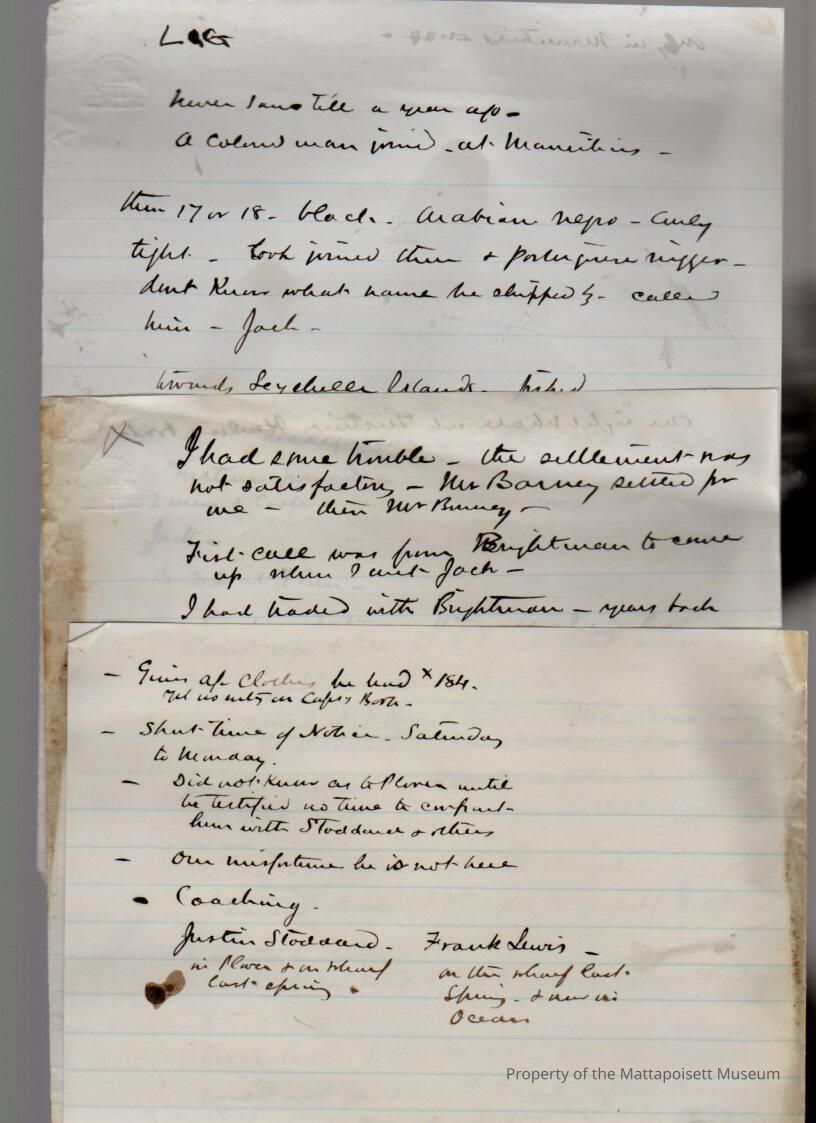 LOG
Never saw till a year ago -
A colored man joined - at Mauritius -
then 17 or 18 - black - Arabian negro - curly
tight - Cook joined then & Portuguese nigger -
dont Know what name he shipped by - called
him - Jack -
towards Seychelle Islands - fished
I had some trouble - the settlement was
not satisfactory - Mr Barney settled for
me - then Mr Barney -
First call was from Brightman to come
up when I met Jack -
I had traded with Brightman - years back
- Gives of clothes he had × 184.
yet no in Capts Book -
- Short time of Notice. Saturday
to Monday.
- Did not Know as to Plover until
he testified no time to confront
him with Stoddard & others
- Our misfortune he is not here
- Coaching.
Justin Stoddard - Frank Lewis -
in Plover & on wharf on the wharf last
last spring. Spring - & now in
Ocean
Property of the Mattapoisett Museum